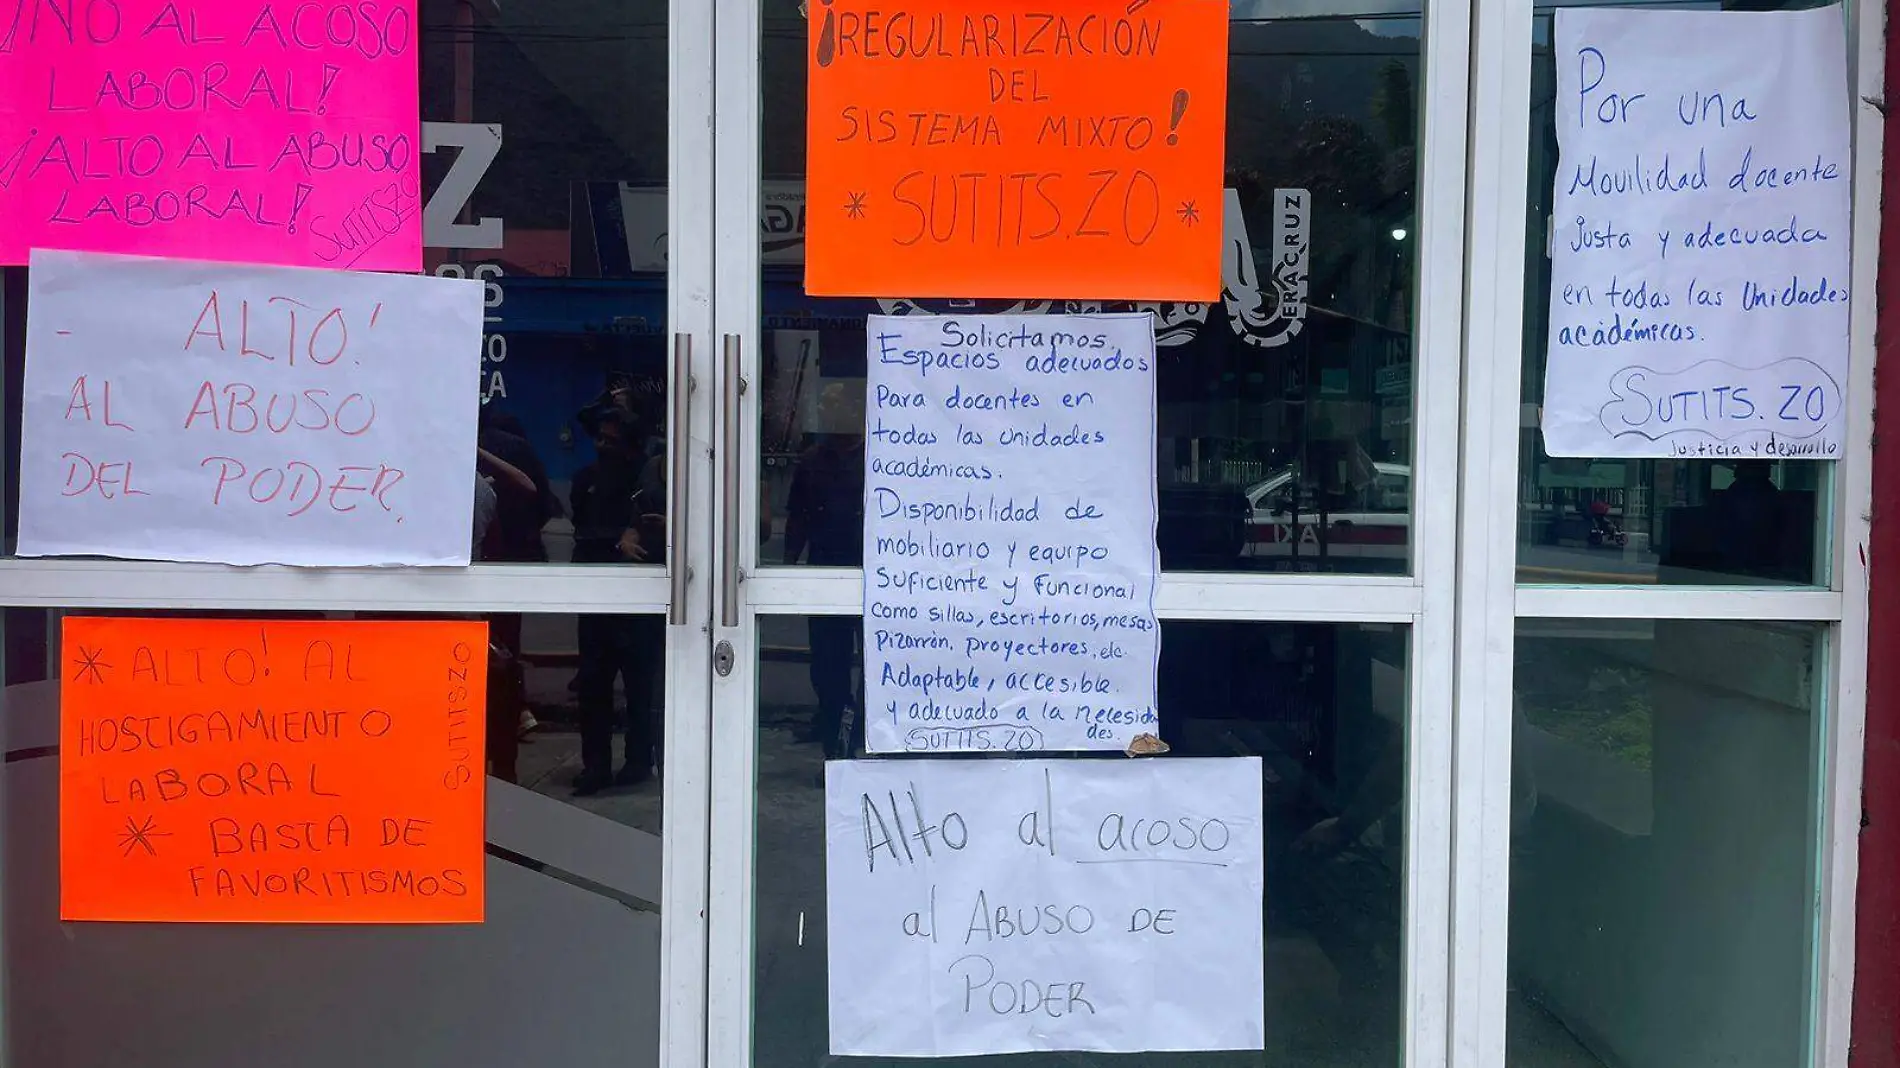 ¡NO AL ACOSO
LABORAL!
¡ALTO AL ABUSO
LABORAL!
SUTITSZO
- ALTO!
AL ABUSO
DEL PODER.
* ALTO! AL
HOSTIGAMIENTO
LABORAL
* BASTA DE
FAVORITISMOS
SUTITSZO
¡REGULARIZACIÓN
DEL
SISTEMA MIXTO!
* SUTITS.ZO *
Solicitamos.
Espacios adecuados
Para docentes en
todas las unidades
académicas.
Disponibilidad de
mobiliario y equipo
Suficiente y Funcional
como sillas, escritorios, mesas
Pizarrón, proyectores, etc.
Adaptable, accesible.
y adecuado a la necesida
des.
SUTITS. ZO
Alto al acoso
al ABUSO DE
PODER
Por una
Movilidad docente
justa y adecuada
en todas las Unidades
académicas.
SUTITS. ZO
Justicia y desarrollo
Z
ERACRUZ